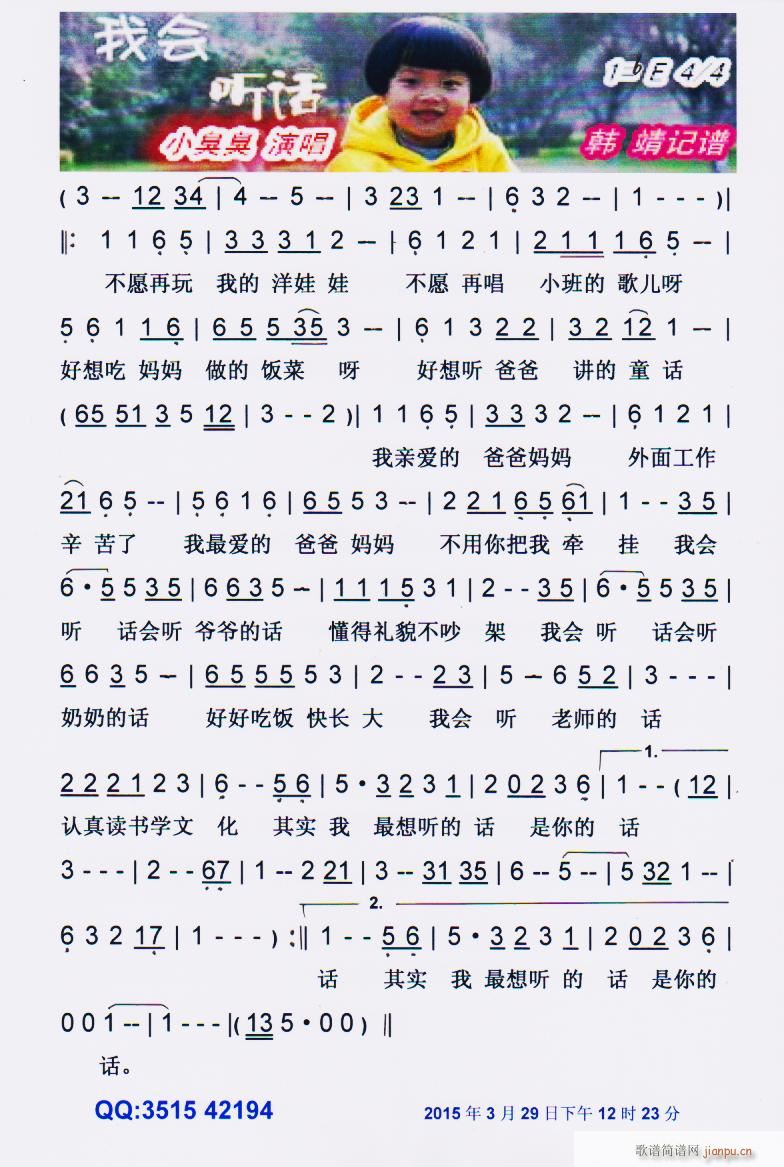 我会
听话
1=bE 4/4
小臭臭 演唱
韩 靖记谱
( 3 -- 12 34 | 4 - 5 - | 3 23 1 -- | 6 3 2 -- | 1 - - - )|
‖: 1 1 6 5 | 3 3 3 1 2 -- | 6 1 2 1 | 2 1 1 1 6 5 -- |
不愿再玩 我的 洋娃 娃 不愿 再唱 小班的 歌儿呀
5 6 1 1 6 | 6 5 5 35 3 -- | 6 1 3 2 2 | 3 2 12 1 -- |
好想吃 妈妈 做的 饭菜 呀 好想听 爸爸 讲的 童 话
( 65 51 3 5 12 | 3 - - 2 )| 1 1 6 5 | 3 3 3 2 -- | 6 1 2 1 |
我亲爱的 爸爸妈妈 外面工作
21 6 5 -- | 5 6 1 6 | 6 5 5 3 -- | 2 2 1 6 5 61 | 1 - - 3 5 |
辛 苦了 我最爱的 爸爸 妈妈 不用你把我 牵 挂 我会
6 · 5 5 3 5 | 6 6 3 5 -- | 1 1 1 5 3 1 | 2 - - 3 5 | 6 · 5 5 3 5 |
听 话会听 爷爷的话 懂得礼貌不吵 架 我会 听 话会听
6 6 3 5 -- | 6 5 5 5 5 3 | 2 - - 2 3 | 5 -- 6 5 2 | 3 - - - |
奶奶的话 好好吃饭 快长 大 我会 听 老师的 话
1.
2 2 2 1 2 3 | 6 - - 5 6 | 5 · 3 2 3 1 | 2 0 2 3 6 | 1 - - ( 12 |
认真读书学文 化 其实 我 最想听的 话 是你的 话
3 - - - | 2 - - 67 | 1 -- 2 21 | 3 -- 31 35 | 6 -- 5 -- | 5 32 1 -- |
2.
6 3 2 17 | 1 - - - ) :‖ 1 - - 5 6 | 5 · 3 2 3 1 | 2 0 2 3 6 |
话 其实 我 最想听 的 话 是你的
0 0 1 -- | 1 - - - |( 13 5 · 0 0 ) ‖
话。
QQ:3515 42194
2015 年 3 月 29 日下午 12 时 23 分
歌谱简谱网
jianpu.cn